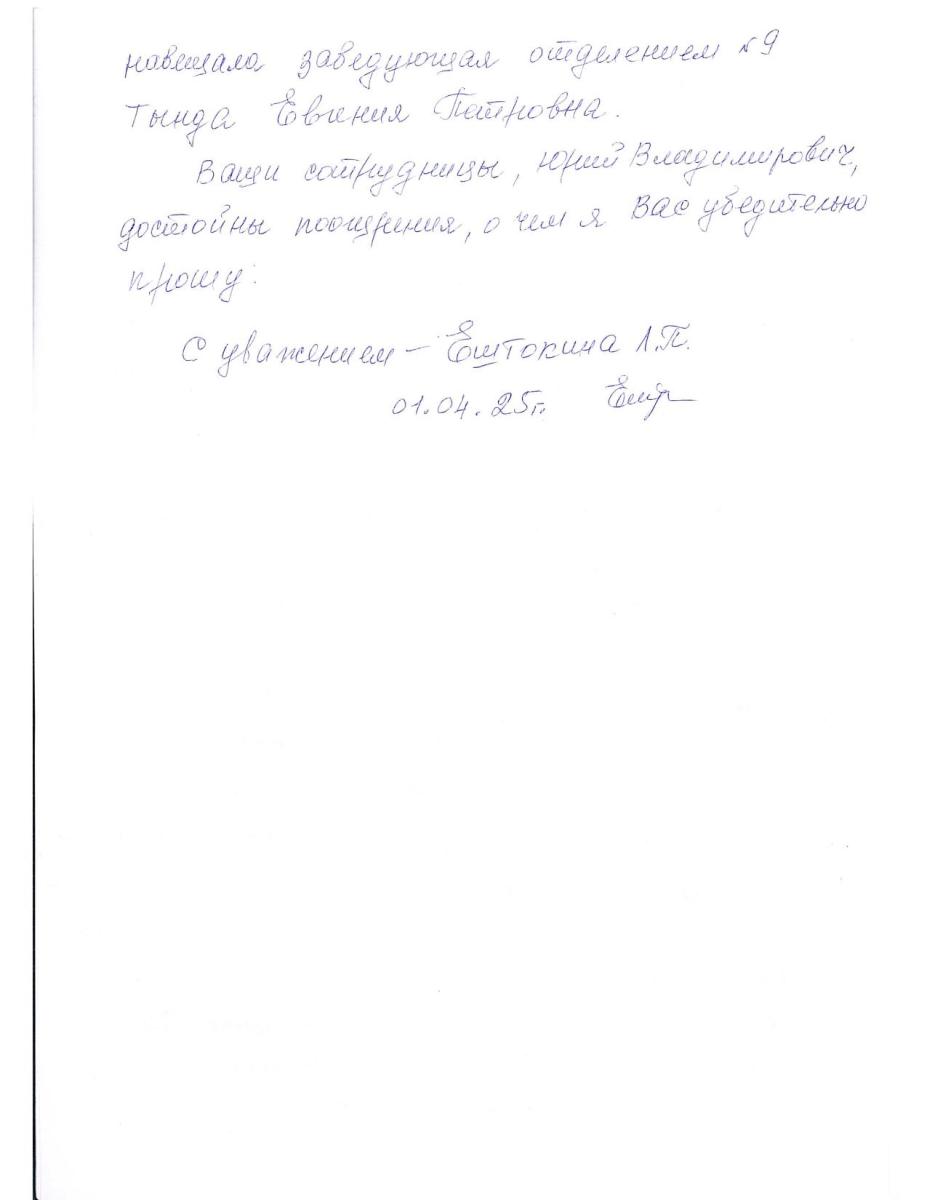 навещала заведующая отделением №9
Тында Евгения Петровна.
Ваши сотрудницы, Юрий Владимирович,
достойны поощрения, о чем я Вас убедительно
прошу.
С уважением – Ештокина Л.П.
01.04.25г.